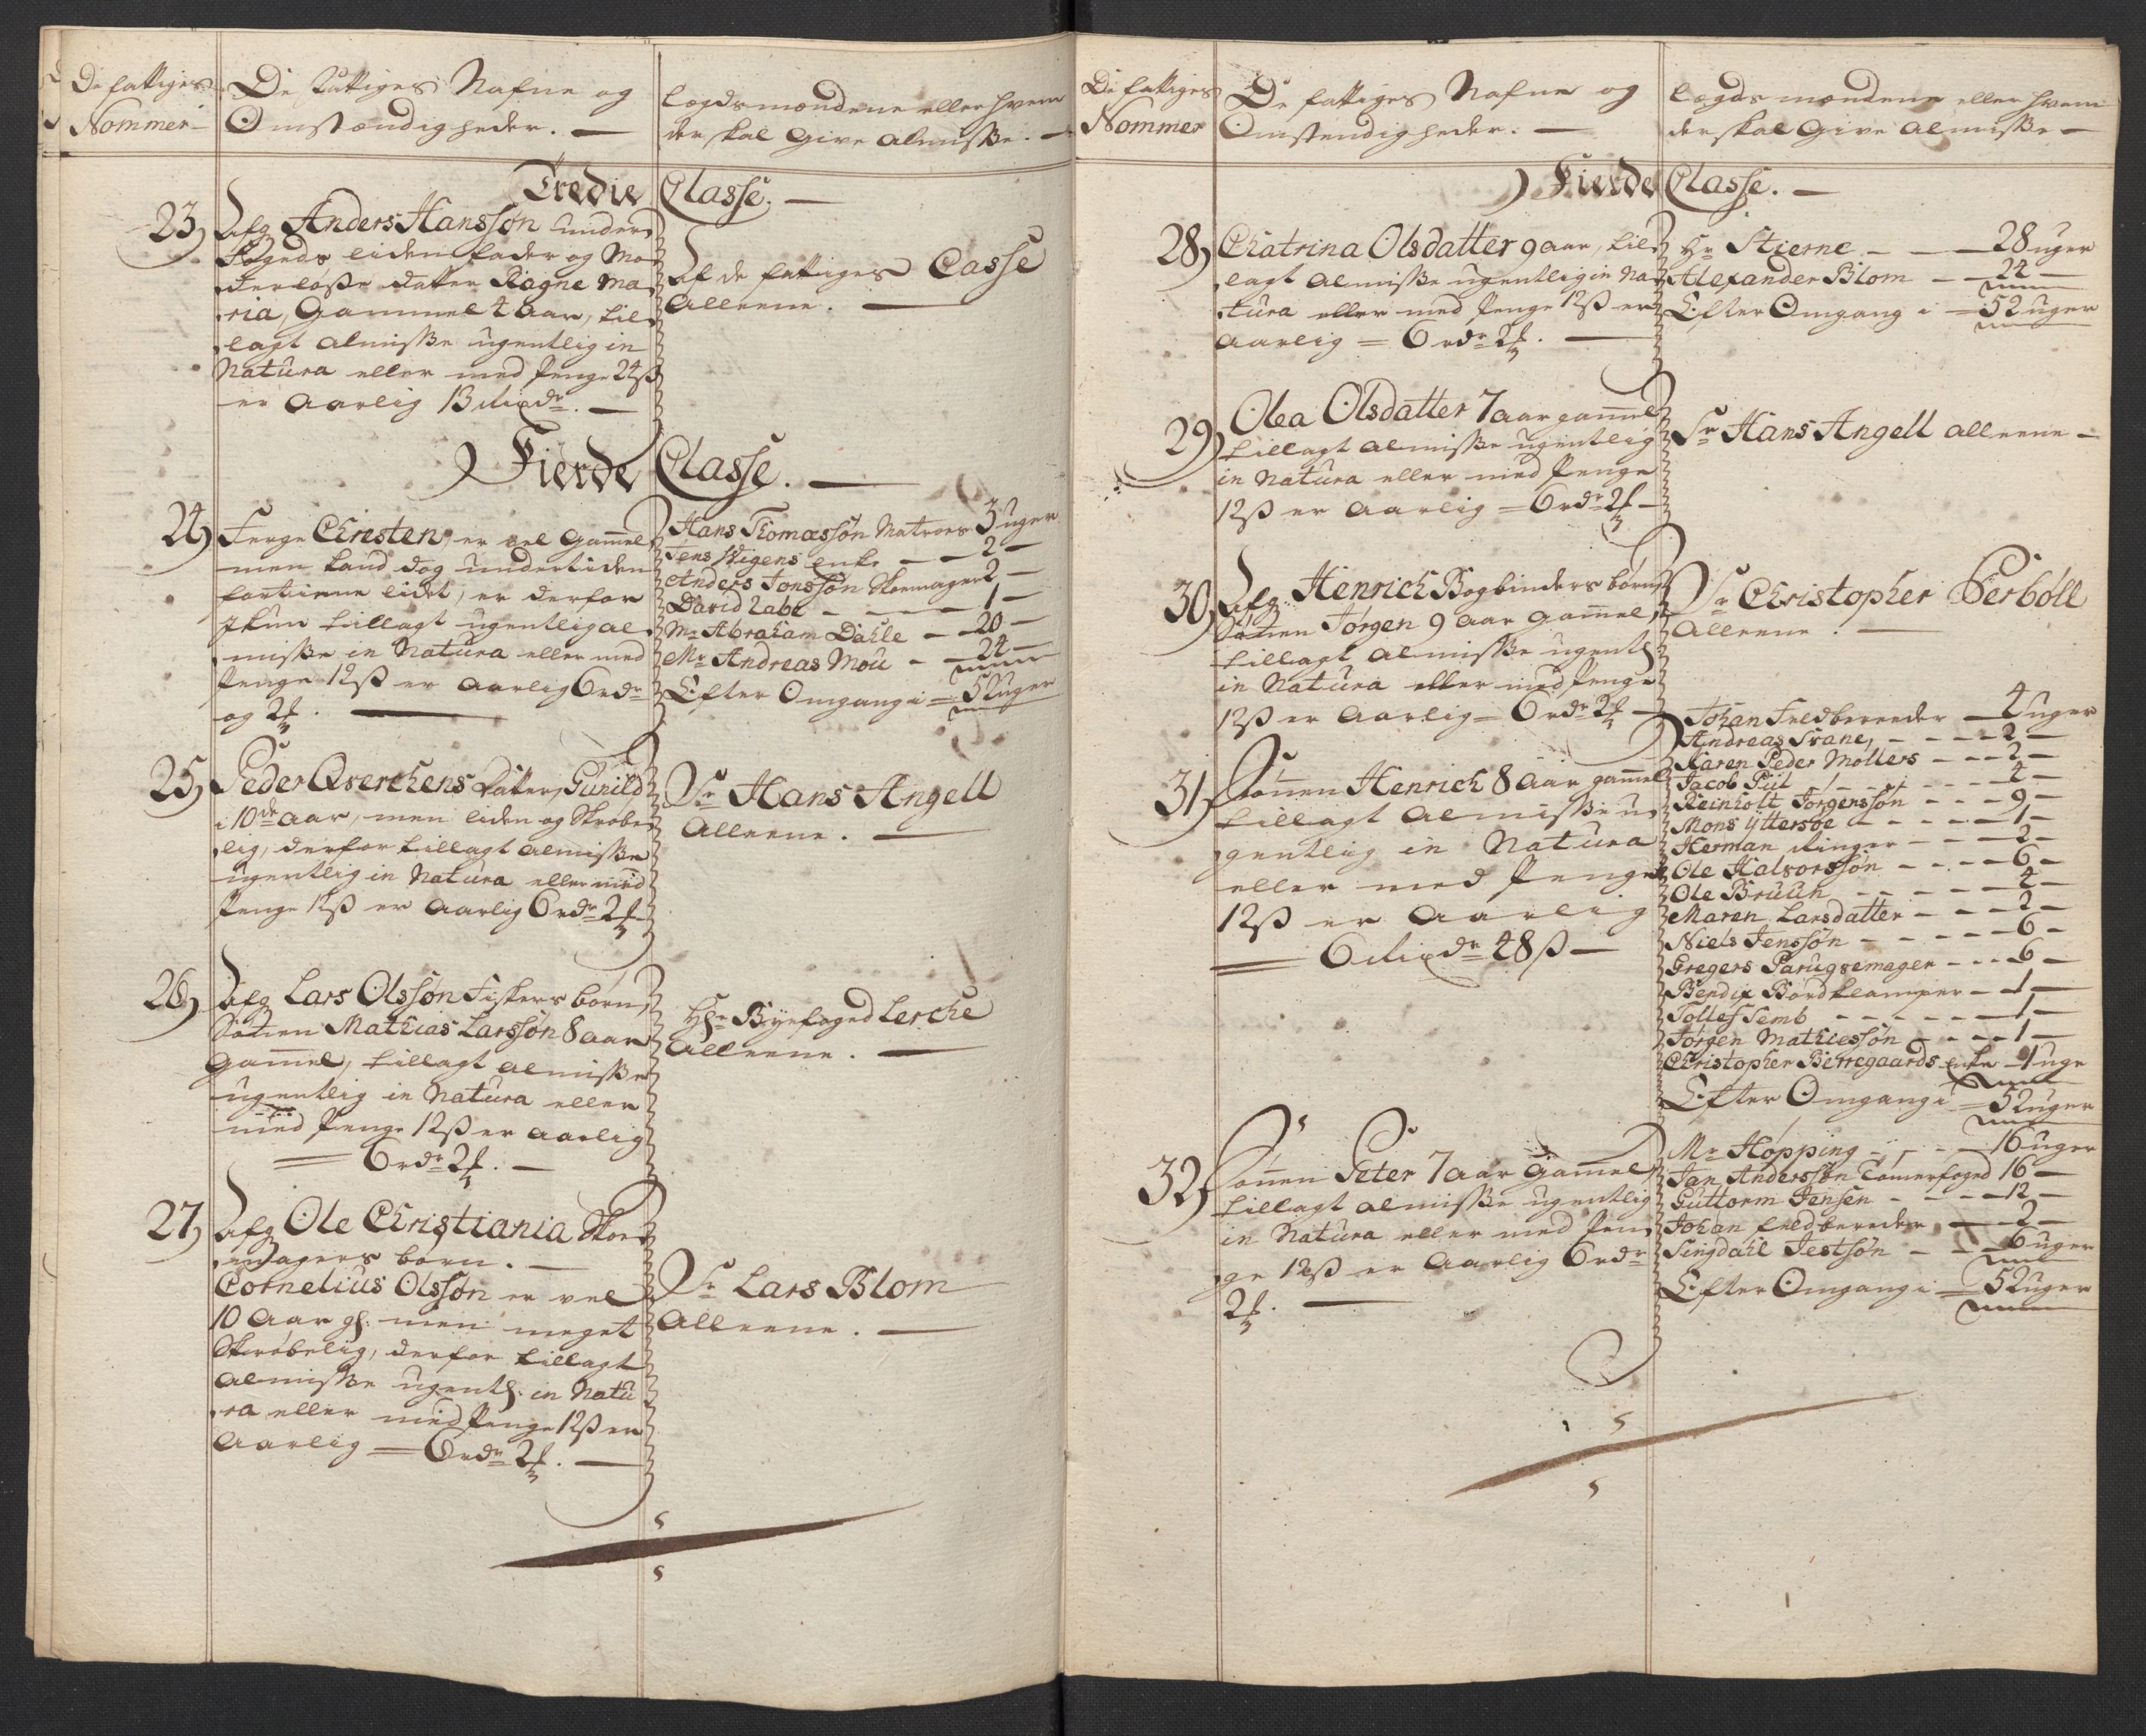 De fattiges
Nommer
De fattiges Nafne og
Omstændigheder.
Lægdsmændene eller hvem
der skal Give Almisse.
Tredie Classe.
23, Afg Anders Hanssøn under-
Fogeds liden fader og Mo-
derløsse datter Ragne Ma-
ria, Gammel 4 Aar, til-
lagt Almisse ugentlig in
Natura eller med Penge 24ß
er Aarlig 13 Rixdr.
Af de fattiges Casse
Alleene.
Fierde Classe.
24, Terge Christen, er vel Gamel
men kand dog undertiden
fortiene lidet, er derfor
ikun tillagt ugentlig al-
misse in Natura eller med
Penge 12ß er Aarlig 6 rdr
og 2
Hans Thomæssøn Matroes 3 uger
Jens Wigens enke 2
Anders Jonssøn Skoemager 2
David Labe 1
Mr Abraham Dahle 20
Mr Andreas Mou 24
Efter Omgang i 52 uger
25, Peder Qverchens datter, Gunild
i 10de Aar, men liden og Skrøbe-
lig, derfor tillagt Almisse
ugentlig in Natura eller med
Penge 12ß er Aarlig 6 rdr 2
Sr Hans Angell
Alleene.
26, Afg Lars Olssøn Fiskers børn,
Sønen Mathias Larssøn 8 aar
Gamel, tillagt Almisse
ugentlig in Natura eller
med Penge 12ß er Aarlig
6 rdr 2
Hr Byefoged Lerche
Alleene.
27, Afg Ole Christiania Skoe-
magers børn.
Cornelius Olssøn er vel
10 Aar gl. men meget
Skrøbelig, derfor tillagt
Almisse ugentl. in Natu
ra eller med Penge 12ß er
Aarlig 6 rdr 2
Sr Lars Blom
Alleene.
De fattiges
Nommer
De fattiges Nafne og
Omstendigheder.
Lægdsmændene eller hvem
der skal Give Almisse
Fierde Classe.
28, Chatrina Olsdatter 9 aar, til-
lagt Almisse ugentlig in Na-
tura eller med Penge 12ß er
Aarlig 6 rdr 2
Hr Stierne 28 uger
Alexander Blom 24
Efter Omgang i 52 uger
29, Olea Olsdatter 7 aar gamel
tillagt Almisse ugentlig
in Natura eller med Penge
12ß er Aarlig 6 rdr 2
Sr Hans Angell alleene
30, Afg Henrich Bogbinders børn,
Sønen Jørgen 9 Aar Gamel,
tillagt Almisse ugentl
in Natura eller med Penge
12ß er Aarlig 6 rdr 2
Sr Christopher Perbøll
Alleene.
31, Sønen Henrich 8 Aar gamel
tillagt Almisse u-
gentlig in Natura
eller med Penge
12ß er Aarlig
6 Rixdr 48ß
Johan Feldbereeder 4 uger
Andreas Svane, 2
Karen Peder Møllers 2
Jacob Piil 4
Reinholt Jørgenssøn 9
Mons Yttersøe 1
Herman Ringer 2
Ole Halvorssøn 6
Ole Bruun 4
Maren Larsdatter 2
Niels Jenssøn 6
Gregers Parugvemager 6
Bendix Bordklamper 1
Tollef Semb 1
Jørgen Mathiessøn 1
Christopher Bierregaards enke 1 uge
Efter Omgang i 52 uger
32, Sønen Peter 7 aar Gamel,
tillagt almisse ugentlig
in Natura eller med Pen-
ge 12ß er Aarlig 6 rdr
2
Mr Høpping 16 uger
Jan Anderssøn Tømerfoged 16
Guttorm Jensen 12
Johan feldbereder 2
Singdahl Jestsøn 6 uger
Efter Omgang i 52 uger